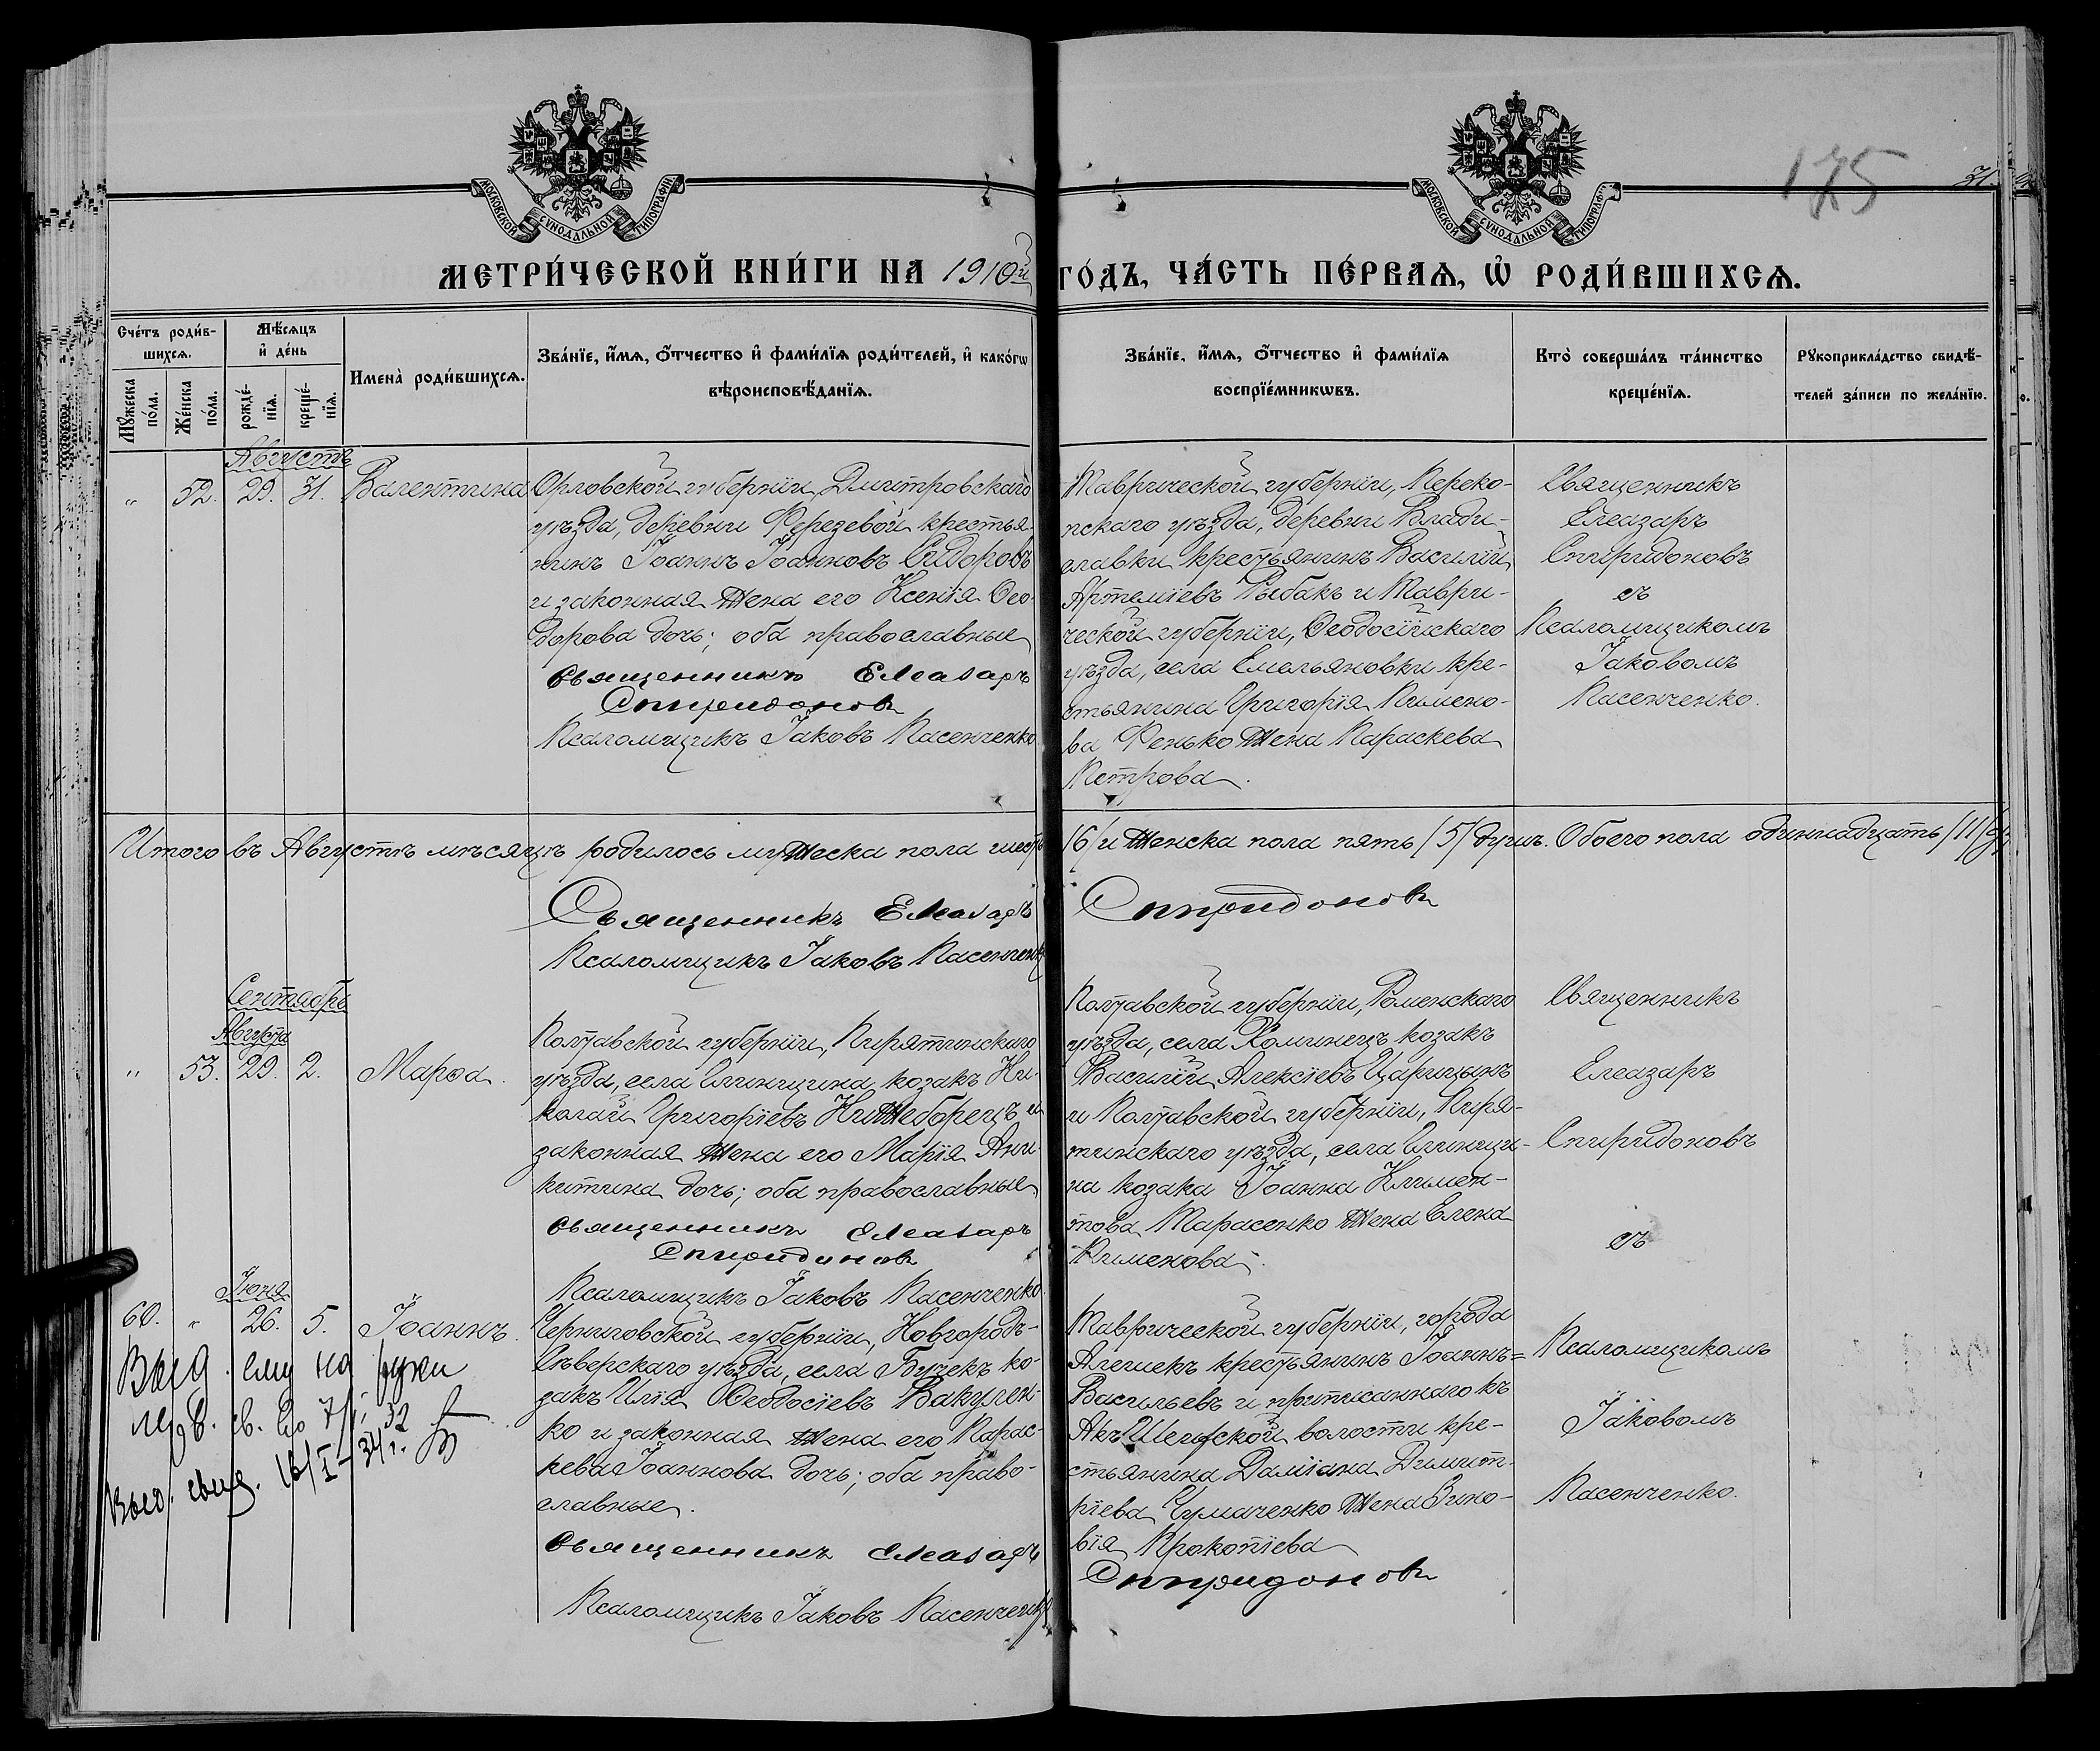 МОСКОВСКОЙ СѴНОДАЛЬНОЙ ТИПОГРАФІИ
МОСКОВСКОЙ СѴНОДАЛЬНОЙ ТИПОГРАФІИ
175
31.
МЕТРИ́ЧЕСКОЙ КНИ́ГИ НА 1910й ГО́ДЪ, ЧА́СТЬ ПЕ́РВАѦ, Ѡ҆ РОДИ́ВШИХСѦ.
Сче́тъ роди́в-
шихсѧ.
Мѹ́жеска по́ла.
Же́нска по́ла.
Мѣ́сѧцъ
и҆ де́нь
рожде́-
нїѧ.
креще́-
нїѧ.
Имена̀ роди́вшихсѧ.
Зва́нїе, и҆́мѧ, ѻ҆́тчество и҆ фами́лїѧ роди́телей, и҆ како́гѡ
вѣроисповѣ́данїѧ.
Зва́нїе, и҆́мѧ, ѻ҆́тчество и҆ фами́лїѧ
воспрїе́мникѡвъ.
Кто̀ соверша́лъ та́инство
креще́нїѧ.
Рѹкоприкла́дство свидѣ́-
телей за́писи по жела́нїю.
Августъ
" 52. 29. 31. Валентина
Орловской губерніи, Дмитровскаго
уѣзда, деревни Ферезевой крестья-
нинъ Іоаннъ Іоанновъ Сидоровъ
и законная жена его Ксенія Ѳео-
дорова дочь; оба православные
Священникъ Елеазаръ
Спиридоновъ
Псаломщикъ Іаковъ Пасенченко
Таврической губерніи, Переко-
пскаго уѣзда, деревни Влади-
славки крестьянинъ Василій
Артеміевъ Рыбакъ и Таври-
ческой губерніи, Ѳеодосійскаго
уѣзда, села Емельяновки кре-
стьянина Григорія Пимено-
ва Фенько жена Параскева
Петрова.
Священникъ
Елеазаръ
Спиридоновъ
съ
Псаломщикомъ
Іаковомъ
Пасенченко.
Итого въ Августѣ мѣсяцѣ родилось мужеска пола шесть /6/ и женска пола пять /5/ душъ. Обоего пола одиннадцать /11/
Священникъ Елеазаръ Спиридоновъ
Псаломщикъ Іаковъ Пасенченко
Сентябрь
Августа
" 53. 29. 2. Марѳа.
Полтавской губерніи, Пирятинскаго
уѣзда, села Смищина козакъ Ни-
колай Григоріевъ Нижеборецъ и
законная жена его Марія Ани-
китина дочь; оба православные
Священникъ Елеазаръ
Спиридоновъ
Псаломщикъ Іаковъ Пасенченко.
Полтавской губерніи, Роменскаго
уѣзда, села Хоминецъ козакъ
Василій Алексіевъ Царицынъ
и Полтавской губерніи, Пиря-
тинскаго уѣзда, села Смищи-
на козака Іоанна Климен-
това Тарасенко жена Елена
Пименова.
Священникъ
Елеазаръ
Спиридоновъ
съ
Псаломщикомъ
Іаковомъ
Пасенченко.
Іюня
60. " 26. 5. Іоаннъ.
Черниговской губерніи, Новгородъ-
Сѣверскаго уѣзда, села Бучекъ ко-
закъ Илія Ѳеодосіевъ Вакулен-
ко и законная жена его Парас-
кева Іоаннова дочь; оба право-
славные.
Священникъ Елеазаръ
Псаломщикъ Іаковъ Пасенченко
Таврической губерніи, города
Алешекъ крестьянинъ Іоаннъ=
Васильевъ и приписаннаго къ
Акъ-Шеихской волости кре-
стьянина Даміана Димит-
ріева Чумаченко жена Зино-
вія Прокопіева
Спиридоновъ
Выд. ему на руки
Выд. свид. 16/I-34 г.